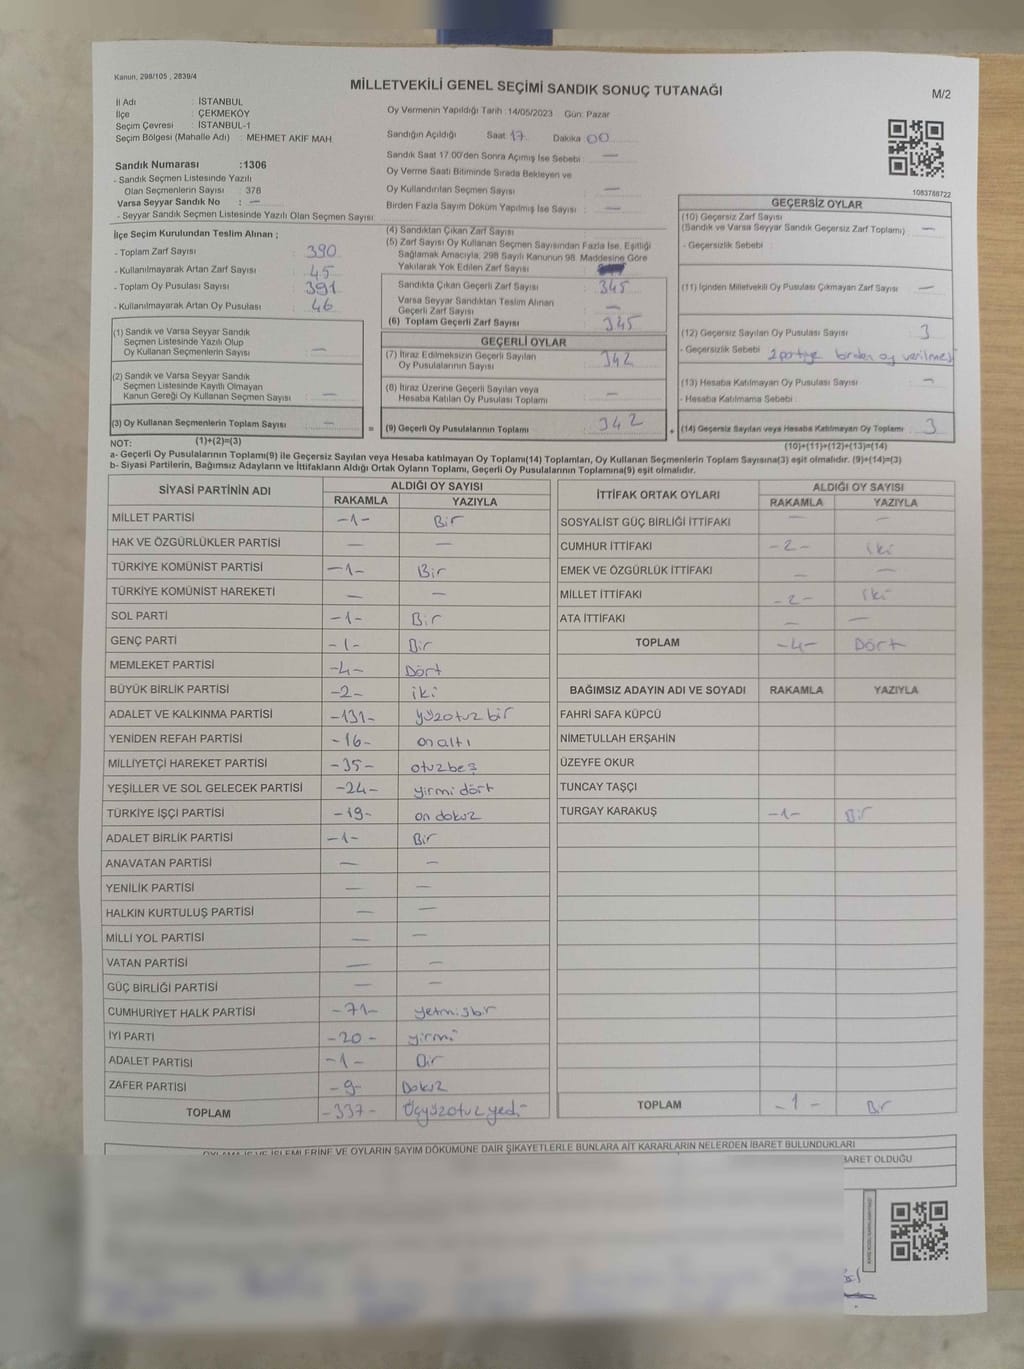 Kanun, 298/105 , 2839/4
MİLLETVEKİLİ GENEL SEÇİMİ SANDIK SONUÇ TUTANAĞI
M/2
İl Adı : İSTANBUL
İlçe : ÇEKMEKÖY
Seçim Çevresi : İSTANBUL-1
Seçim Bölgesi (Mahalle Adı) : MEHMET AKİF MAH.
Sandık Numarası :1306
- Sandık Seçmen Listesinde Yazılı
Olan Seçmenlerin Sayısı : 378
Varsa Seyyar Sandık No : —
- Seyyar Sandık Seçmen Listesinde Yazılı Olan Seçmen Sayısı:
Oy Vermenin Yapıldığı Tarih :14/05/2023 Gün: Pazar
Sandığın Açıldığı Saat 17 Dakika 00
Sandık Saat 17:00'den Sonra Açımış İse Sebebi : —
Oy Verme Saati Bitiminde Sırada Bekleyen ve
Oy Kullandırılan Seçmen Sayısı : —
Birden Fazla Sayım Döküm Yapılmış İse Sayısı : —
1083788722
İlçe Seçim Kurulundan Teslim Alınan ;
- Toplam Zarf Sayısı : 390
- Kullanılmayarak Artan Zarf Sayısı : 45
- Toplam Oy Pusulası Sayısı : 391
- Kullanılmayarak Artan Oy Pusulası : 46
(1) Sandık ve Varsa Seyyar Sandık
Seçmen Listesinde Yazılı Olup
Oy Kullanan Seçmenlerin Sayısı : —
(2) Sandık ve Varsa Seyyar Sandık
Seçmen Listesinde Kayıtlı Olmayan
Kanun Gereği Oy Kullanan Seçmen Sayısı : —
(3) Oy Kullanan Seçmenlerin Toplam Sayısı : —
(4) Sandıktan Çıkan Zarf Sayısı
(5) Zarf Sayısı Oy Kullanan Seçmen Sayısından Fazla İse, Eşitliği
Sağlamak Amacıyla, 298 Sayılı Kanunun 98. Maddesine Göre
Yakılarak Yok Edilen Zarf Sayısı
Sandıkta Çıkan Geçerli Zarf Sayısı : 345
Varsa Seyyar Sandıktan Teslim Alınan
Geçerli Zarf Sayısı : —
(6) Toplam Geçerli Zarf Sayısı : 345
GEÇERLİ OYLAR
(7) İtiraz Edilmeksizin Geçerli Sayılan
Oy Pusulalarının Sayısı : 342
(8) İtiraz Üzerine Geçerli Sayılan veya
Hesaba Katılan Oy Pusulası Toplamı : —
= (9) Geçerli Oy Pusulalarının Toplamı : 342
GEÇERSİZ OYLAR
(10) Geçersiz Zarf Sayısı
(Sandık ve Varsa Seyyar Sandık Geçersiz Zarf Toplamı) : —
- Geçersizlik Sebebi :
(11) İçinden Milletvekili Oy Pusulası Çıkmayan Zarf Sayısı : —
(12) Geçersiz Sayılan Oy Pusulası Sayısı : 3
- Geçersizlik Sebebi : 2 partiye birden oy verilmesi
(13) Hesaba Katılmayan Oy Pusulası Sayısı : —
- Hesaba Katılmama Sebebi :
+ (14) Geçersiz Sayılan veya Hesaba Katılmayan Oy Toplamı : 3
NOT: (1)+(2)=(3) (10)+(11)+(12)+(13)=(14)
a- Geçerli Oy Pusulalarının Toplamı(9) ile Geçersiz Sayılan veya Hesaba katılmayan Oy Toplamı(14) Toplamları, Oy Kullanan Seçmenlerin Toplam Sayısına(3) eşit olmalıdır. (9)+(14)=(3)
b- Siyasi Partilerin, Bağımsız Adayların ve İttifakların Aldığı Ortak Oyların Toplamı, Geçerli Oy Pusulalarının Toplamına(9) eşit olmalıdır.
SİYASİ PARTİNİN ADI ALDIĞI OY SAYISI
RAKAMLA YAZIYLA
MİLLET PARTİSİ -1- Bir
HAK VE ÖZGÜRLÜKLER PARTİSİ — —
TÜRKİYE KOMÜNİST PARTİSİ -1- Bir
TÜRKİYE KOMÜNİST HAREKETİ — —
SOL PARTİ -1- Bir
GENÇ PARTİ -1- Bir
MEMLEKET PARTİSİ -4- Dört
BÜYÜK BİRLİK PARTİSİ -2- iki
ADALET VE KALKINMA PARTİSİ -131- yüzotuz bir
YENİDEN REFAH PARTİSİ -16- on altı
MİLLİYETÇİ HAREKET PARTİSİ -35- otuzbeş
YEŞİLLER VE SOL GELECEK PARTİSİ -24- yirmi dört
TÜRKİYE İŞÇİ PARTİSİ -19- on dokuz
ADALET BİRLİK PARTİSİ -1- Bir
ANAVATAN PARTİSİ — —
YENİLİK PARTİSİ — —
HALKIN KURTULUŞ PARTİSİ — —
MİLLİ YOL PARTİSİ — —
VATAN PARTİSİ — —
GÜÇ BİRLİĞİ PARTİSİ — —
CUMHURİYET HALK PARTİSİ -71- yetmişbir
İYİ PARTİ -20- yirmi
ADALET PARTİSİ -1- Bir
ZAFER PARTİSİ -9- Dokuz
TOPLAM -337- Üçyüzotuz yedi
İTTİFAK ORTAK OYLARI ALDIĞI OY SAYISI
RAKAMLA YAZIYLA
SOSYALİST GÜÇ BİRLİĞİ İTTİFAKI — —
CUMHUR İTTİFAKI -2- iki
EMEK VE ÖZGÜRLÜK İTTİFAKI — —
MİLLET İTTİFAKI -2- iki
ATA İTTİFAKI — —
TOPLAM -4- Dört
BAĞIMSIZ ADAYIN ADI VE SOYADI RAKAMLA YAZIYLA
FAHRİ SAFA KÜPCÜ
NİMETULLAH ERŞAHİN
ÜZEYFE OKUR
TUNCAY TAŞÇI
TURGAY KARAKUŞ -1- Bir
TOPLAM -1- Bir
VE OYLARIN SAYIM DÖKÜMÜNE DAİR ŞİKAYETLERLE BUNLARA AİT KARARLARIN NELERDEN İBARET BULUNDUKLARI
İBARET OLDUĞU